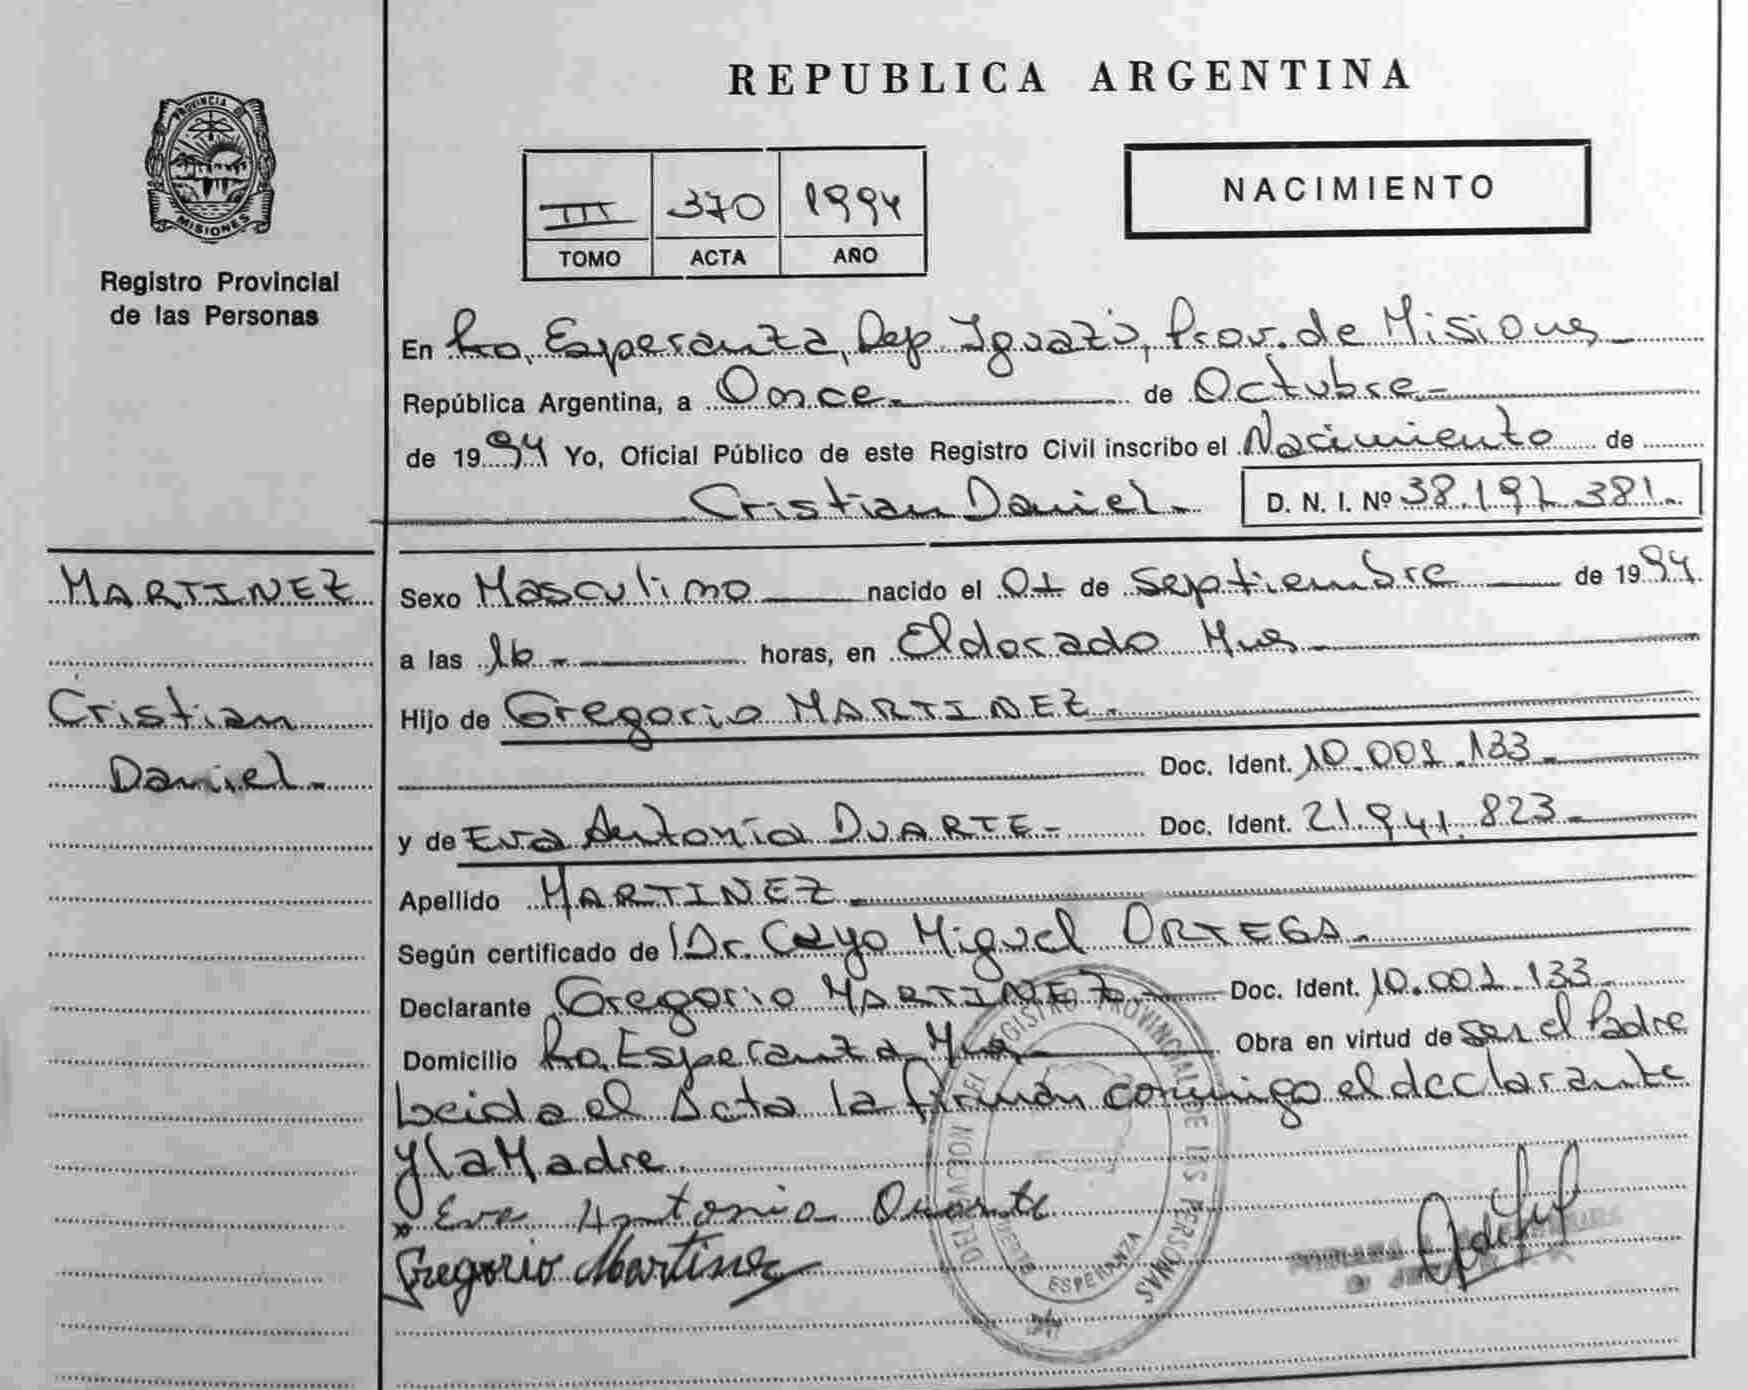 REPUBLICA ARGENTINA
PROVINCIA DE
MISIONES
Registro Provincial
de las Personas
III 370 1994
TOMO ACTA AÑO
NACIMIENTO
En Pto. Esperanza, Dep. Iguazú, Prov. de Misiones
República Argentina, a Once de Octubre
de 1994 Yo, Oficial Público de este Registro Civil inscribo el Nacimiento de
Cristian Daniel D. N. I. Nº 38.197.381
MARTINEZ
Cristian
Daniel
Sexo Masculino nacido el 01 de Septiembre de 1994
a las 16 horas, en Eldorado Mnes
Hijo de Gregorio MARTINEZ
Doc. Ident. 10.001.133
y de Eva Antonia DUARTE Doc. Ident. 21.941.823
Apellido MARTINEZ
Según certificado de Dr. Cayo Miguel ORTEGA
Declarante Gregorio MARTINEZ Doc. Ident. 10.001.133
Domicilio Pto. Esperanza Mnes Obra en virtud de ser el Padre
Leida el Acta la firman conmigo el declarante
y la Madre
Eva Antonia Duarte
Gregorio Martinez
REGISTRO PROVINCIAL DE LAS PERSONAS
ESPERANZA